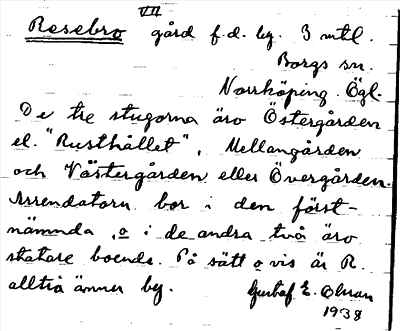 VII
Resebro gård f.d. by. 3 mtl.
Borgs sn.
Norrköping. Ögl.
De tre stugorna äro Östergården
el. "Rusthållet", Mellangården
och Västergården eller Övergården.
Arrendatorn bor i den först-
nämnda, o i de andra två äro
statare boende. På sätt o vis är R.
alltså ännu by. Gustaf E. Olsson
1938